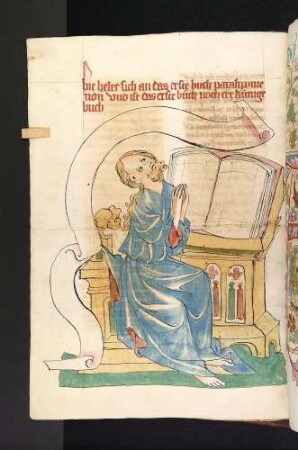 hie hebet sich an das erste buch paralippome
non vnd ist das erste buch noch der künige
buch